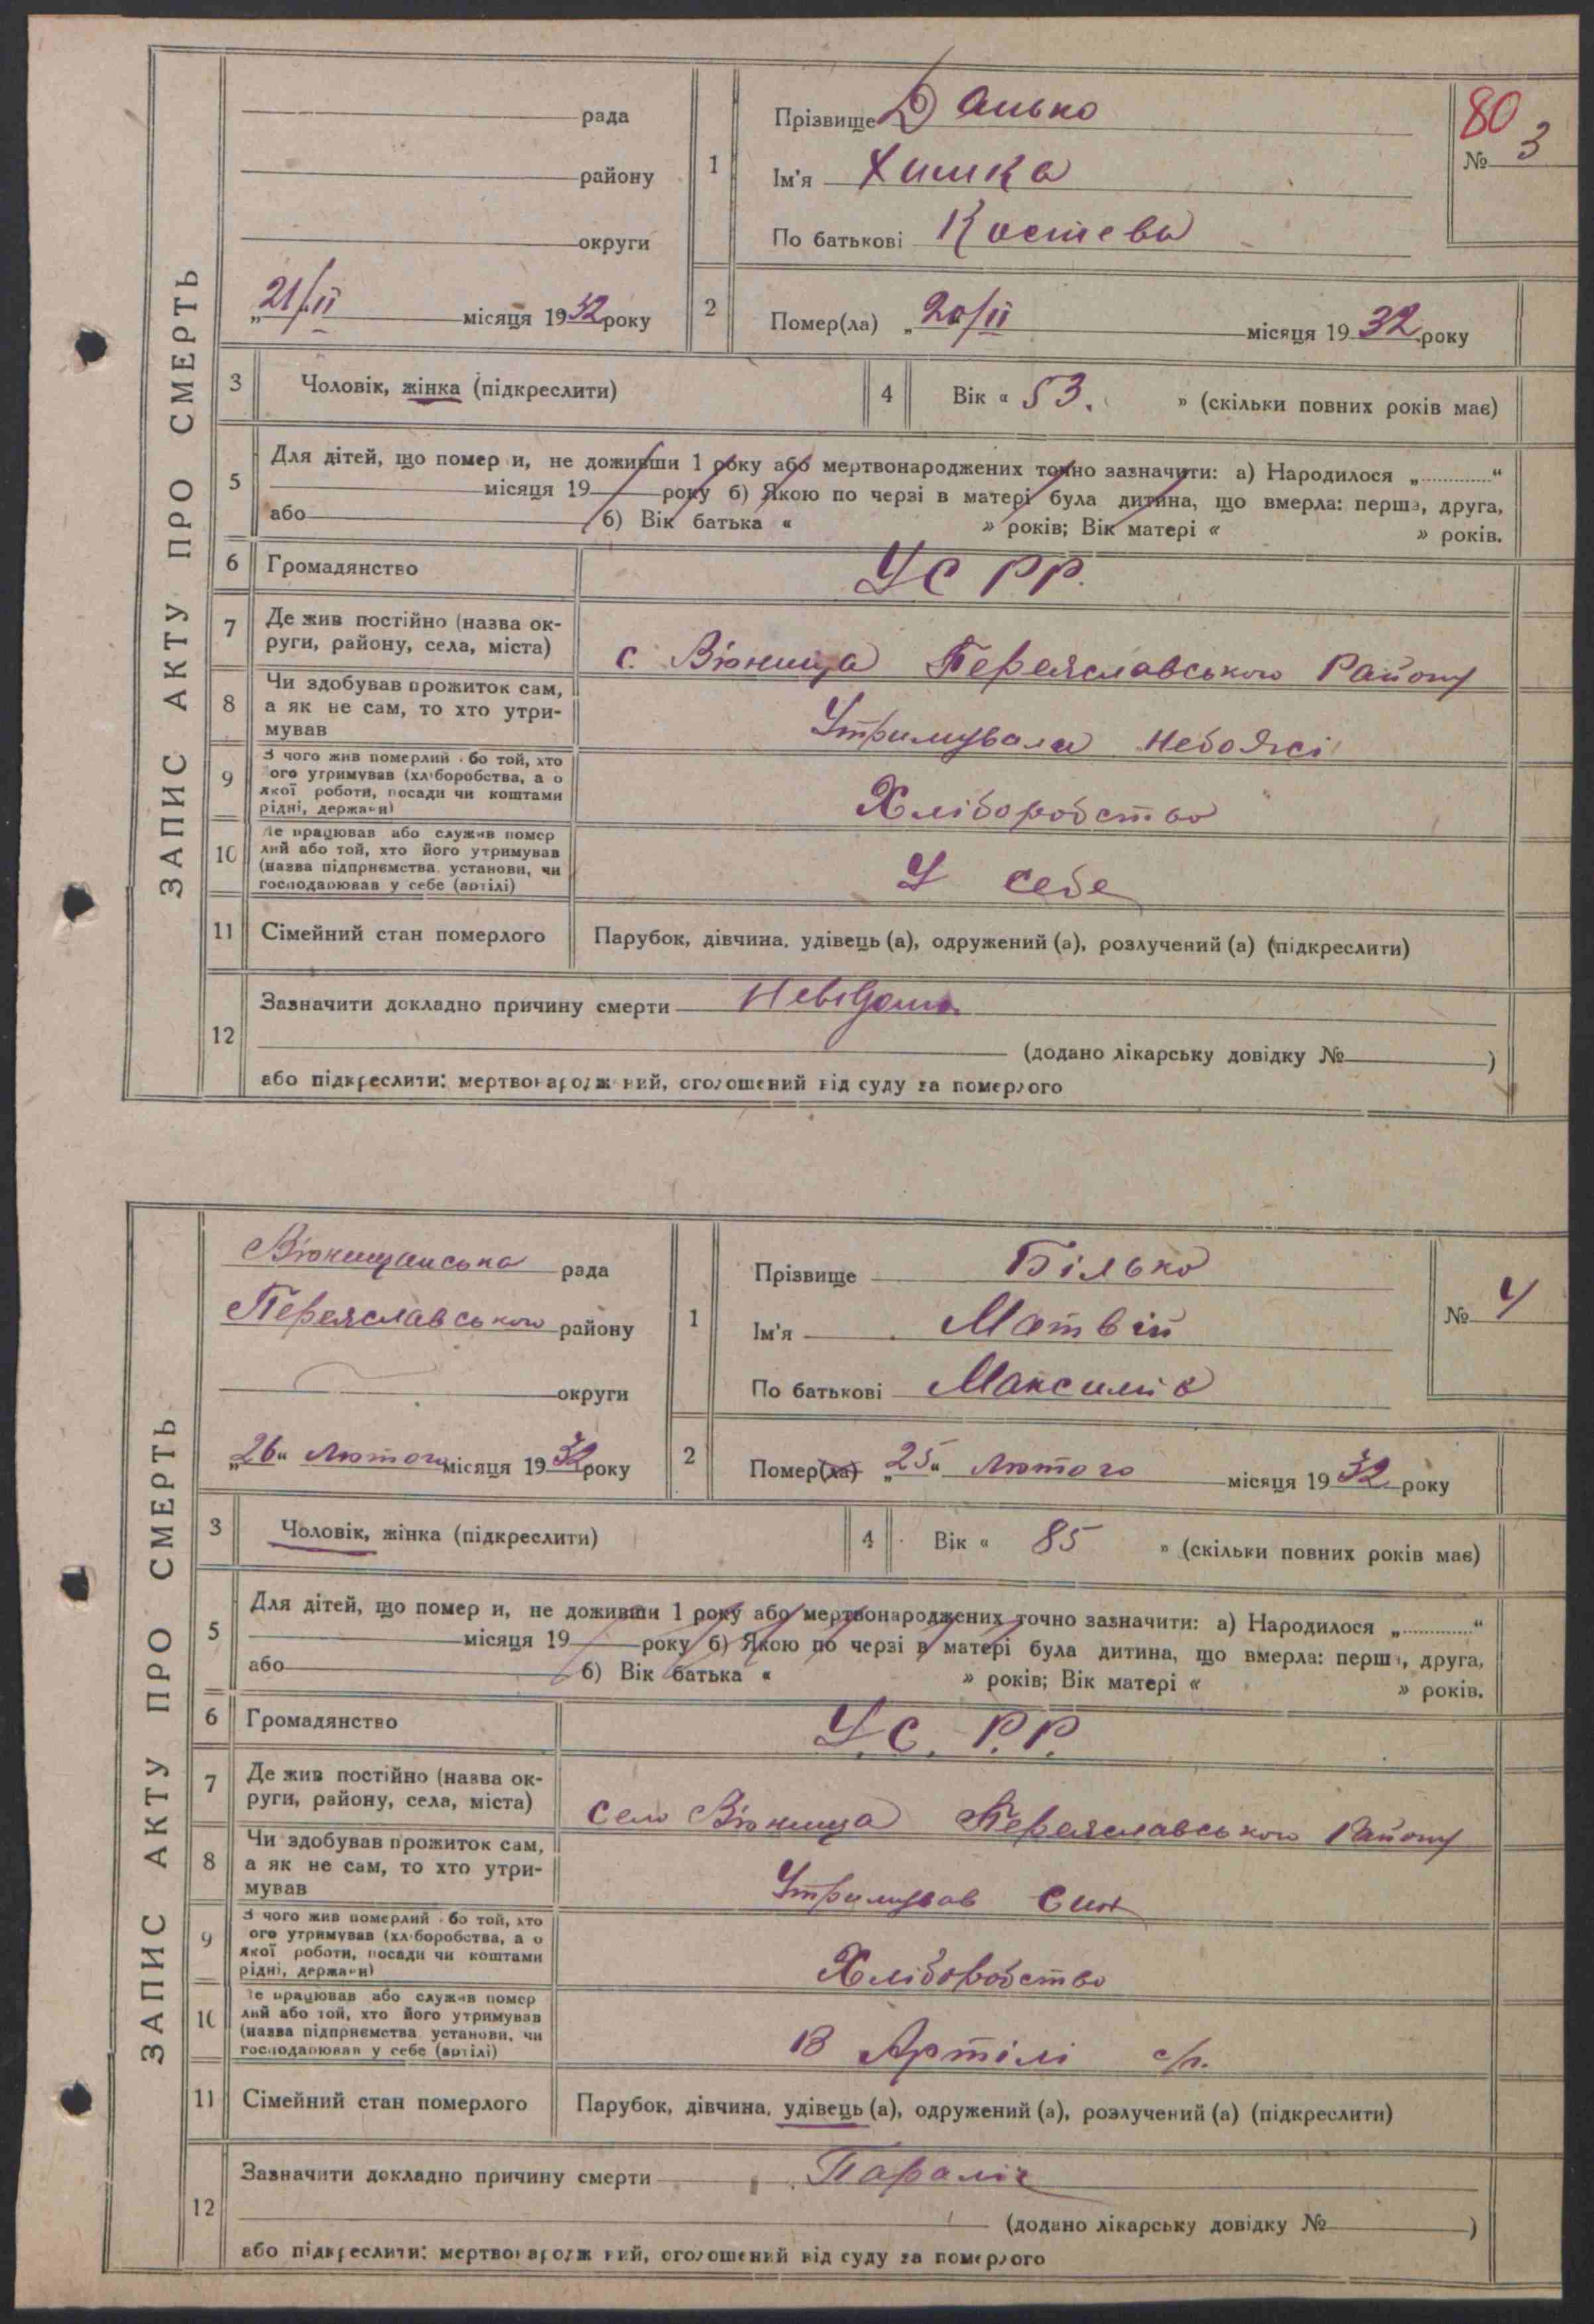 ЗАПИС АКТУ ПРО СМЕРТЬ
80
№ 3
рада
району
округи
„21/ІІ місяця 1932 року
1
Прізвище Данько
Ім'я Химка
По батькові Костева
2
Помер(ла) „20/ІІ місяця 1932 року
3 Чоловік, жінка (підкреслити)
4 Вік « 53. » (скільки повних років має)
5 Для дітей, що помер и, не доживши 1 року або мертвонароджених точно зазначити: а) Народилося „ “
місяця 19 року б) Якою по черзі в матері була дитина, що вмерла: перша, друга,
або б) Вік батька « » років; Вік матері « » років.
6 Громадянство УСРР.
7 Де жив постійно (назва ок-
руги, району, села, міста)
с. В'юнища Переяславського Району
8 Чи здобував прожиток сам,
а як не сам, то хто утри-
мував
Утримувала
9 З чого жив померлий або той, хто
ого утримував (хліборобства, а о
якої роботи, посади чи коштами
рідні, держави)
Хліборобство
10 Де працював або служив помер
лий або той, хто його утримував
(назва підприємства установи, чи
господарював у себе (артілі)
У себе
11 Сімейний стан померлого Парубок, дівчина, удівець (а), одружений (а), розлучений (а) (підкреслити)
12 Зазначити докладно причину смерти Невідома
(додано лікарську довідку № )
або підкреслити: мертвонароджений, оголошений від суду за померлого
ЗАПИС АКТУ ПРО СМЕРТЬ
В'юнищанська рада
Переяславського району
округи
„26“ Лютого місяця 1932 року
1
Прізвище Білько
Ім'я Матвій
По батькові Максимів
№ 4
2
Помер(ла) „25“ Лютого місяця 1932 року
3 Чоловік, жінка (підкреслити)
4 Вік « 85 » (скільки повних років має)
5 Для дітей, що помер и, не доживши 1 року або мертвонароджених точно зазначити: а) Народилося „ “
місяця 19 року б) Якою по черзі в матері була дитина, що вмерла: перша, друга,
або б) Вік батька « » років; Вік матері « » років.
6 Громадянство У.С.Р.Р.
7 Де жив постійно (назва ок-
руги, району, села, міста)
Село В'юнища Переяславського Району
8 Чи здобував прожиток сам,
а як не сам, то хто утри-
мував
Утримував Син
9 З чого жив померлий або той, хто
ого утримував (хліборобства, а о
якої роботи, посади чи коштами
рідні, держави)
Хліборобство
10 Де працював або служив помер
лий або той, хто його утримував
(назва підприємства установи, чи
господарював у себе (артілі)
В Артілі с/г.
11 Сімейний стан померлого Парубок, дівчина, удівець (а), одружений (а), розлучений (а) (підкреслити)
12 Зазначити докладно причину смерти Параліч
(додано лікарську довідку № )
або підкреслити: мертвонароджений, оголошений від суду за померлого